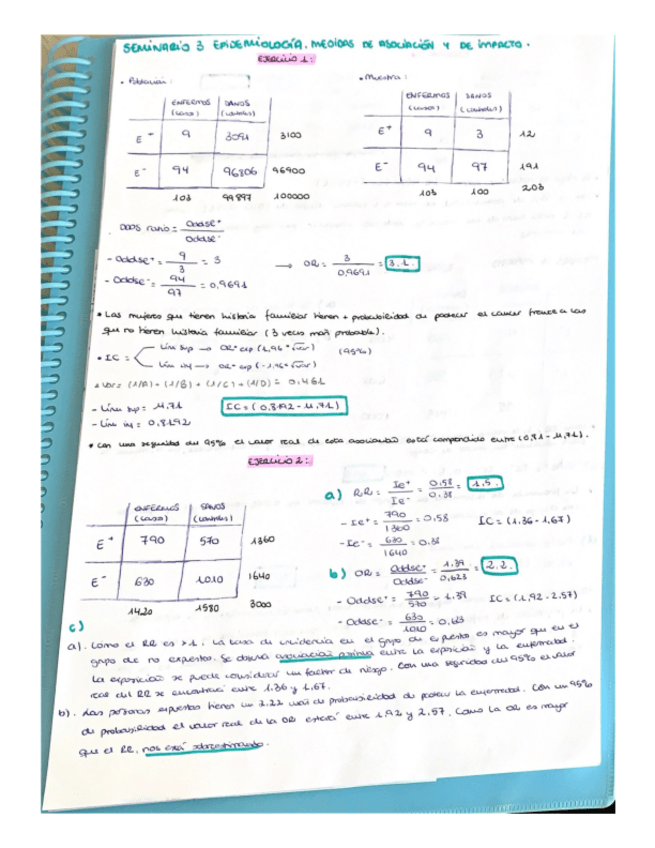 SEMINARIO 3 EPIDEMIOLOGÍA. MEDIDAS DE ASOCIACIÓN Y DE IMPACTO.
EJERCICIO 1:
• Población:
• Muestra:
ENFERMOS (casos) SANOS (controles)
E+ 9 3091 3100
E- 94 96806 96900
103 99897 100000
ENFERMOS (casos) SANOS (controles)
E+ 9 3 12
E- 94 97 191
103 100 203
ODDS ratio = Oddse+ / Oddse-
- Oddse+ = 9/3 = 3
- Oddse- = 94/97 = 0,9691
→ OR = 3 / 0,9691 = 3.1.
• Las mujeres que tienen historia familiar tienen + probabilidad de padecer el cancer frente a las
que no tienen historia familiar (3 veces más probable).
• IC = Lím sup → OR* exp (1,96 * √var) (95%)
Lím inf → OR* exp (-1,96 * √var)
Var = (1/A) + (1/B) + (1/C) + (1/D) = 0,461
- Lím sup = 11,71
- Lím inf = 0,8192
IC = (0,8192 - 11,71)
• Con una seguridad del 95% el valor real de esta asociación está comprendido entre (0,81 - 11,71).
EJERCICIO 2:
ENFERMOS (casos) SANOS (controles)
E+ 790 570 1360
E- 630 1010 1640
1420 1580 3000
a) RR = Ie+ / Ie- = 0,58 / 0,38 = 1,5.
- Ie+ = 790/1360 = 0,58
- Ie- = 630/1640 = 0,38
IC = (1,36 - 1,67)
b) OR = Oddse+ / Oddse- = 1,39 / 0,623 = 2.2.
- Oddse+ = 790/570 = 1,39
- Oddse- = 630/1010 = 0,623
IC = (1,92 - 2,57)
c)
a). Como el RR es >1, la tasa de incidencia en el grupo de expuestos es mayor que en el
grupo de no expuestos. Se observa asociación positiva entre la exposición y la enfermedad.
La exposición se puede considerar un factor de riesgo. Con una seguridad del 95% el valor
real del RR se encontrará entre 1,36 y 1,67.
b). Las personas expuestas tienen un 2.22 de probabilidad de padecer la enfermedad. Con un 95%
de probabilidad el valor real de la OR estará entre 1,92 y 2,57. Como la OR es mayor
que el RR, nos está sobreestimando.